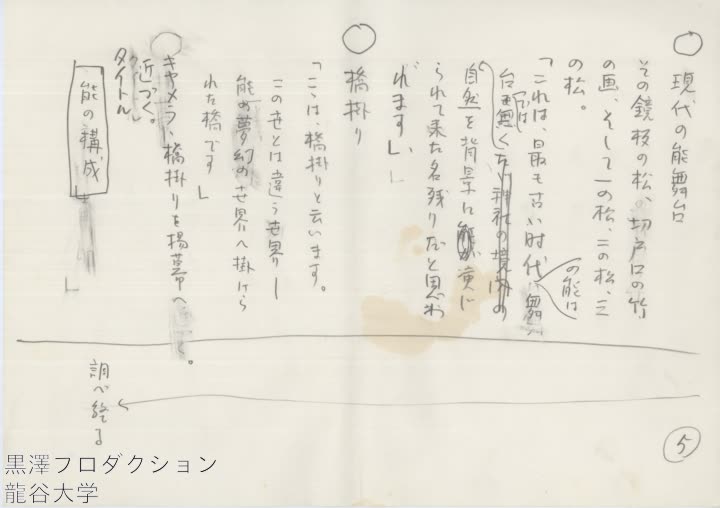 現代の能舞台
その鏡板の松、切戸口の竹
の画、そして一の松、二の松、三
の松。
「これは、最も古い時代
の能は
舞
台も無く
神社の境内の
自然を背景に
演じ
られて来た名残りだと思わ
れます」
橋掛り
「ここは、橋掛りと云います。
この世とは違う世界ー
能の夢幻の世界へ掛けら
れた橋です」
キャメラ、橋掛りを揚幕へ
近づく。
タイトル
能の構成
調べ終る
5
黒澤プロダクション
龍谷大学